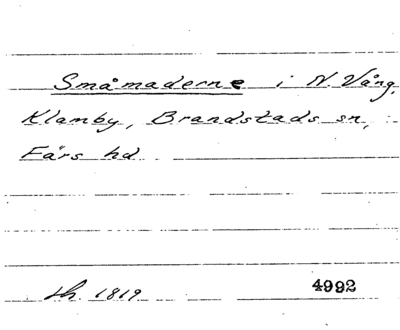 Småmaderne i N. Vång,
Klamby, Brandstads sn,
Färs hd
sk. 1819 4992